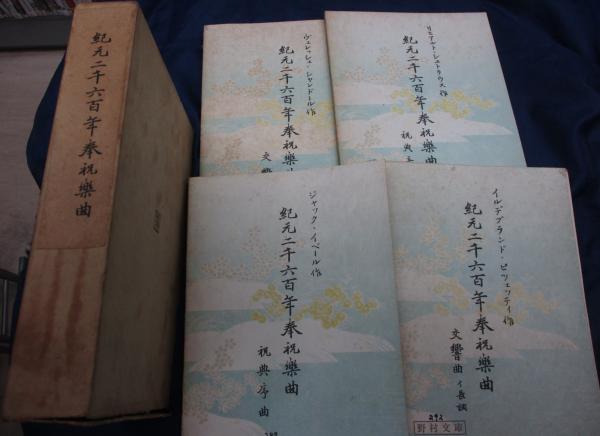 紀元二千六百年奉祝樂曲
ヴェレッシュ・シャンドール作
紀元二千六百年奉祝樂曲
交響
リヒアルト・シュトラウス作
紀元二千六百年奉祝樂曲
祝典
ジャック・イベール作
紀元二千六百年奉祝樂曲
祝典序曲
イルデブランド・ピツェッティ作
紀元二千六百年奉祝樂曲
交響曲 イ長調
292
野村文庫